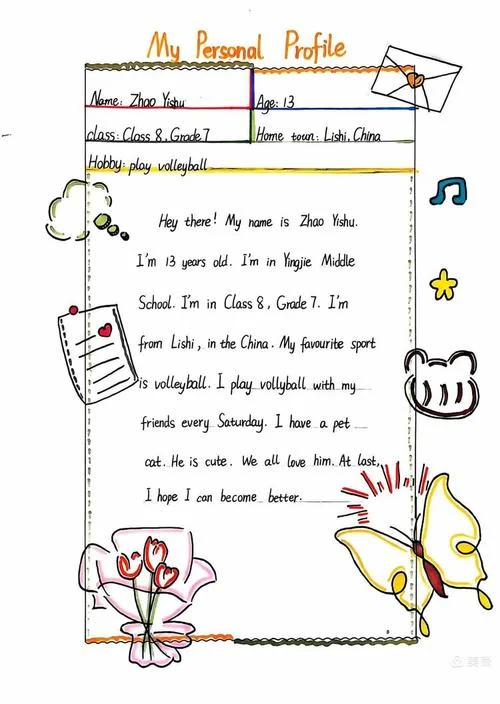 My Personal Profile
Name: Zhao Yishu
Age: 13
class: Class 8, Grade 7
Home town: Lishi, China
Hobby: play volleyball
Hey there! My name is Zhao Yishu.
I'm 13 years old. I'm in Yingjie Middle
School. I'm in Class 8, Grade 7. I'm
from Lishi, in the China. My favourite sport
is volleyball. I play vollyball with my
friends every Saturday. I have a pet
cat. He is cute. We all love him. At last,
I hope I can become better.